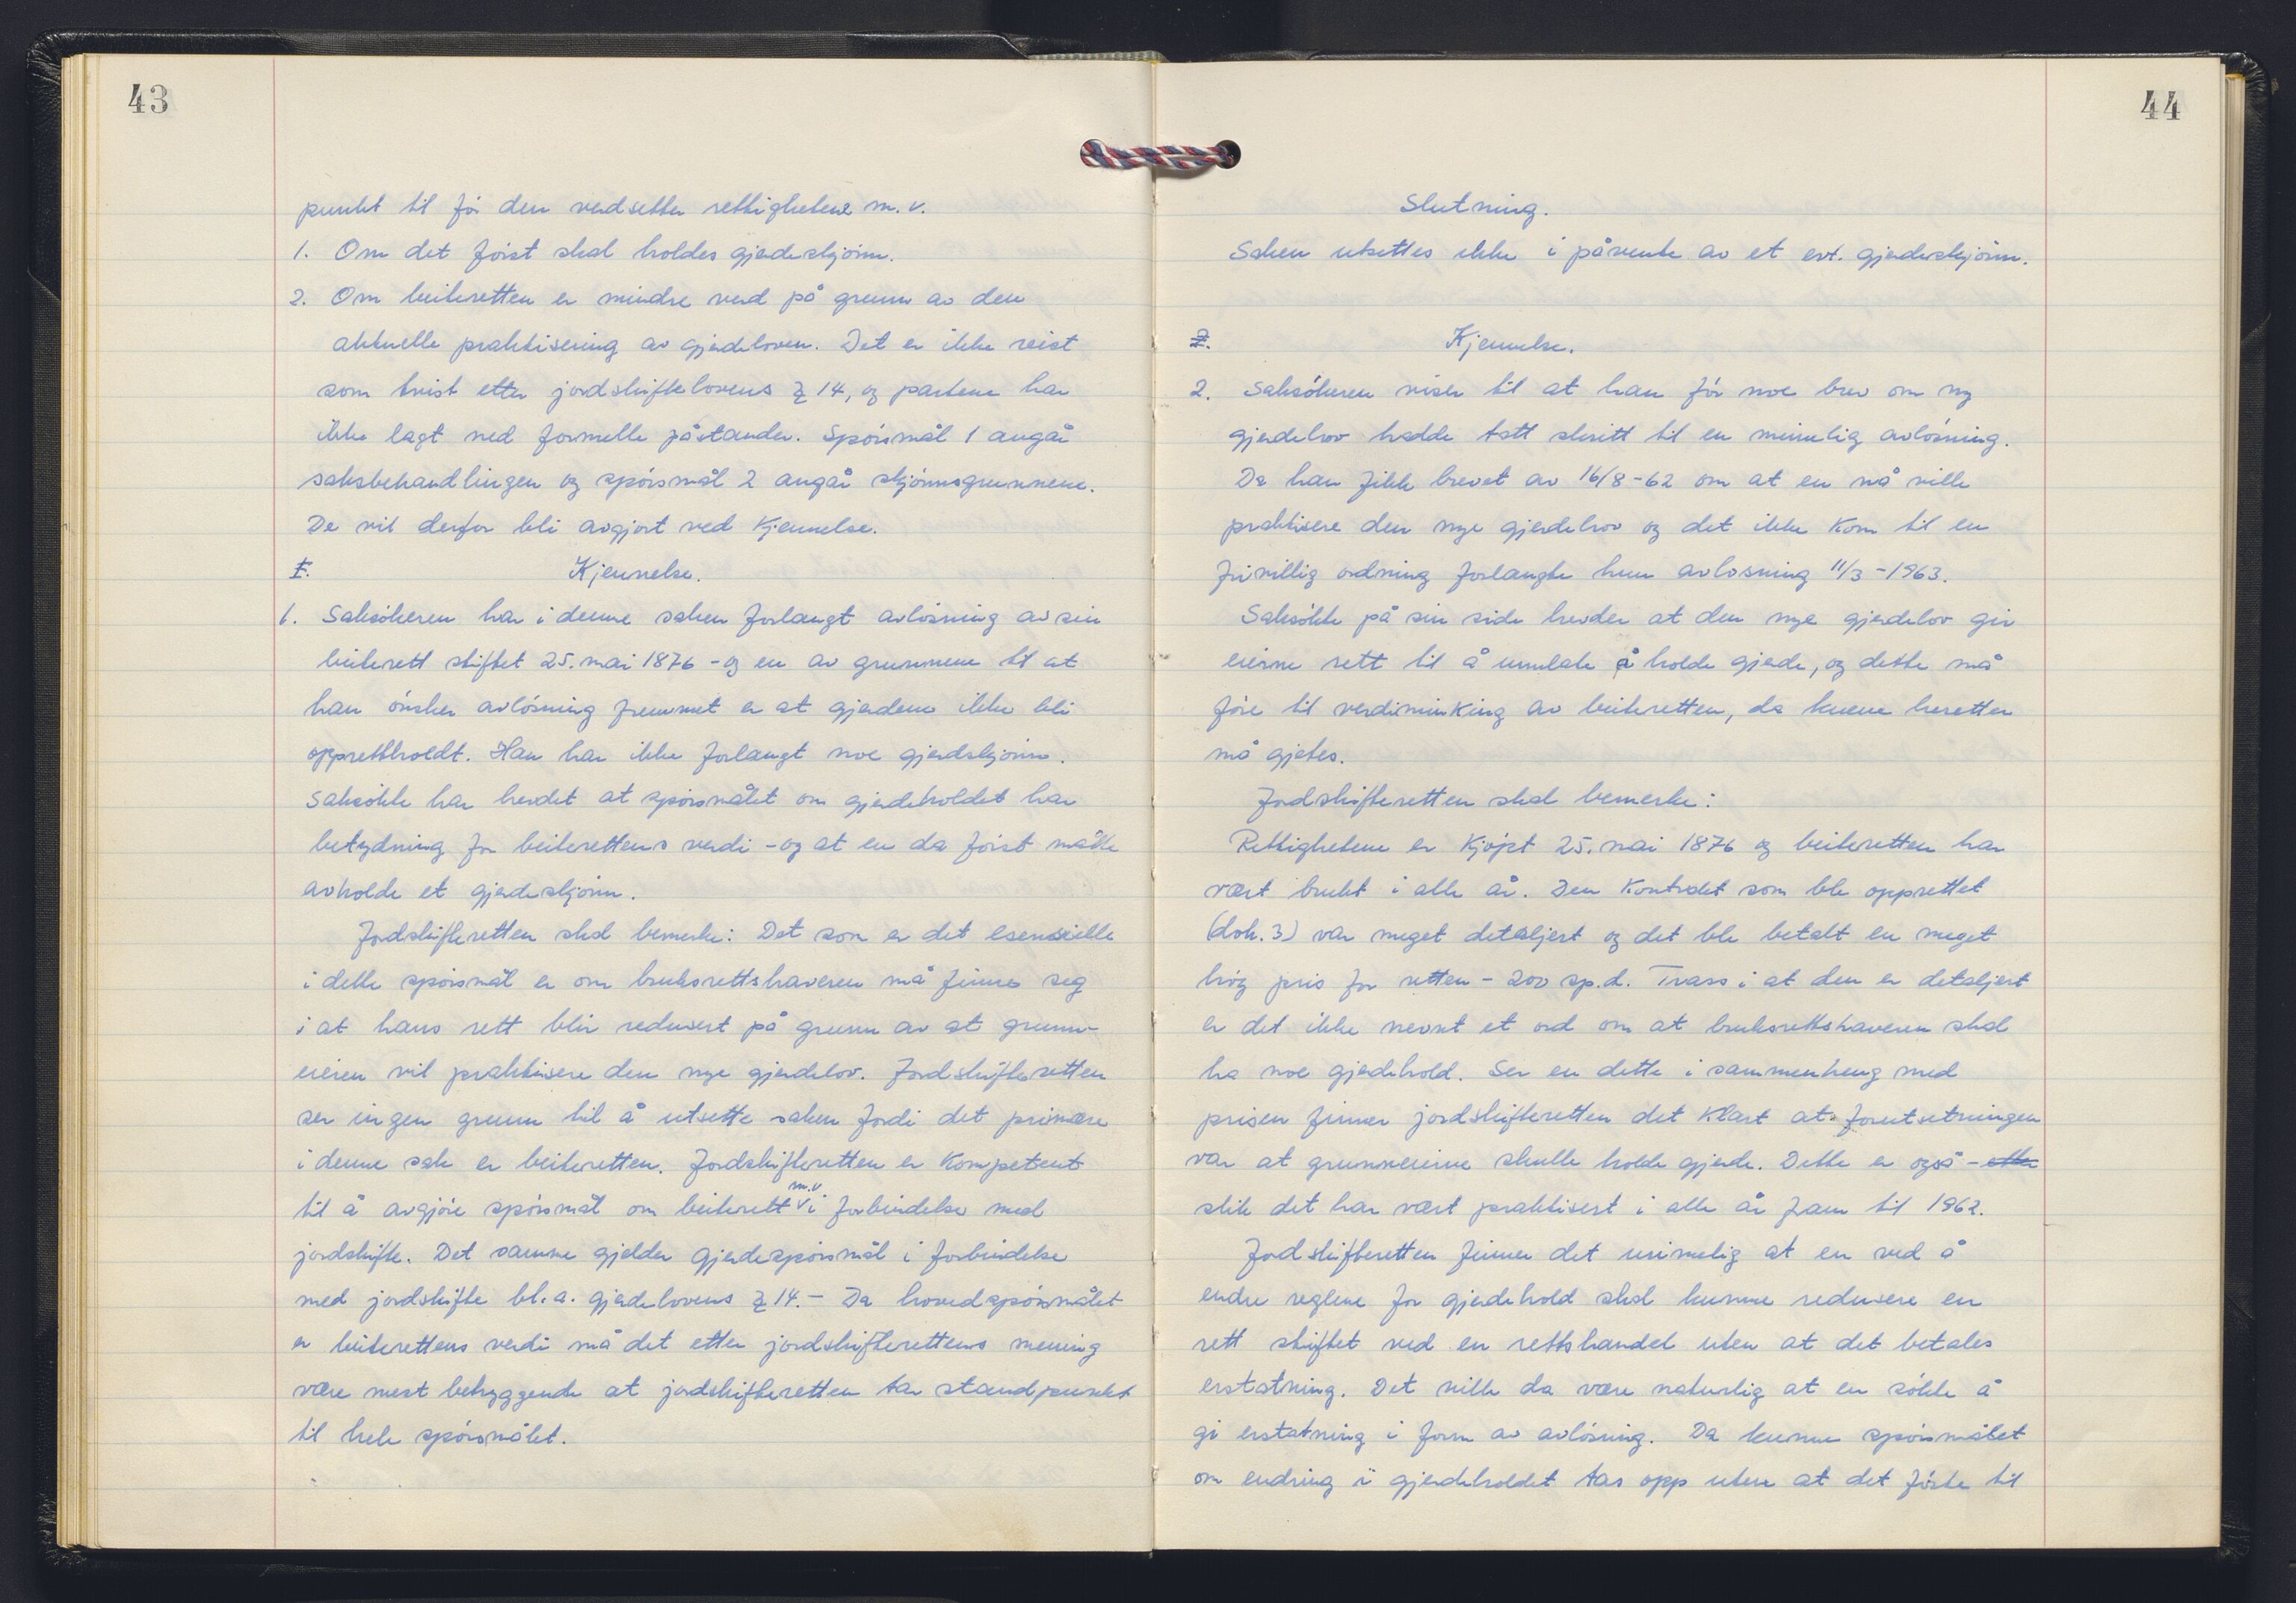 43
punkt til för den verdsetter rettighetene m.v.
1. Om det först skal holdes gjerdeskjönn.
2. Om beiteretten er mindre verd på grunn av den
aktuelle praktisering av gjerdeloven. Det er ikke reist
som tvist etter jordskiftelovens § 14, og partene har
ikke lagt ned formelle påstander. Spörsmål 1 angår
saksbehandlingen og spörsmål 2 angår skjönnsgrunnene.
De vil derfor bli avgjort ved Kjennelse.
I. Kjennelse.
1. Saksökeren har i denne saken forlangt avlösning av sin
beiterett stiftet 25. mai 1876 - og en av grunnene til at
han önsker avlösning fremmet er at gjerdene ikke bli
opprettholdt. Han har ikke forlangt noe gjerdskjönn.
Saksökte har hevdet at spörsmålet om gjerdeholdet har
betydning for beiterettens verdi - og at en da först måtte
avholde et gjerdeskjönn.
Jordskifteretten skal bemerke: Det som er det esensielle
i dette spörsmål er om bruksrettshaveren må finne seg
i at hans rett blir redusert på grunn av at grunn-
eieren vil praktisere den nye gjerdelov. Jordskifteretten
ser ingen grunn til å utsette saken fordi det primære
i denne sak er beiteretten. Jordskifteretten er Kompetent
til å avgjöre spörsmål om beiterett m.v i forbindelse med
jordskifte. Det samme gjelder gjerdespörsmål i forbindelse
med jordskifte bl.a. gjerdelovens § 14. - Da hovedspörsmålet
er beiterettens verdi må det etter jordskifterettens mening
være mest betryggende at jordskifteretten tar standpunkt
til hele spörsmålet.
44
Slutning.
Saken utsettes ikke i påvente av et evt. gjerdeskjönn.
2. Kjennelse.
2. Saksökeren viser til at han för noe brev om ny
gjerdelov hadde tatt skritt til en minnelig avlösning.
Da han fikk brevet av 16/8-62 om at en nå ville
praktisere den nye gjerdelov og det ikke Kom til en
frivillig ordning forlangte hun avlösning 11/3-1963.
Saksökte på sin side hevder at den nye gjerdelov gir
eierne rett til å unnlate å holde gjerde, og dette må
före til verdiminking av beiteretten, da kuene heretter
må gjetes.
Jordskifteretten skal bemerke:
Rettighetene er Kjöpt 25. mai 1876 og beiteretten har
vært brukt i alle år. Den Kontrakt som ble opprettet
(dok. 3) var meget detaljert og det ble betalt en meget
hög pris for retten - 200 sp.d. Trass i at den er detaljert
er det ikke nevnt et ord om at bruksrettshaveren skal
ha noe gjerdehold. Ser en dette i sammenheng med
prisen finner jordskifteretten det Klart at forutsetningen
var at grunneierne skulle holde gjerde. Dette er også - etter
slik det har vært praktisert i alle år fram til 1962.
Jordskifteretten finner det urimelig at en ved å
endre reglene for gjerdehold skal kunne redusere en
rett stiftet ved en rettshandel uten at det betales
erstatning. Det ville da være naturlig at en sökte å
gi erstatning i form av avlösning. Da kunne spörsmålet
om endring i gjerdeholdet tas opp uten at det förte til